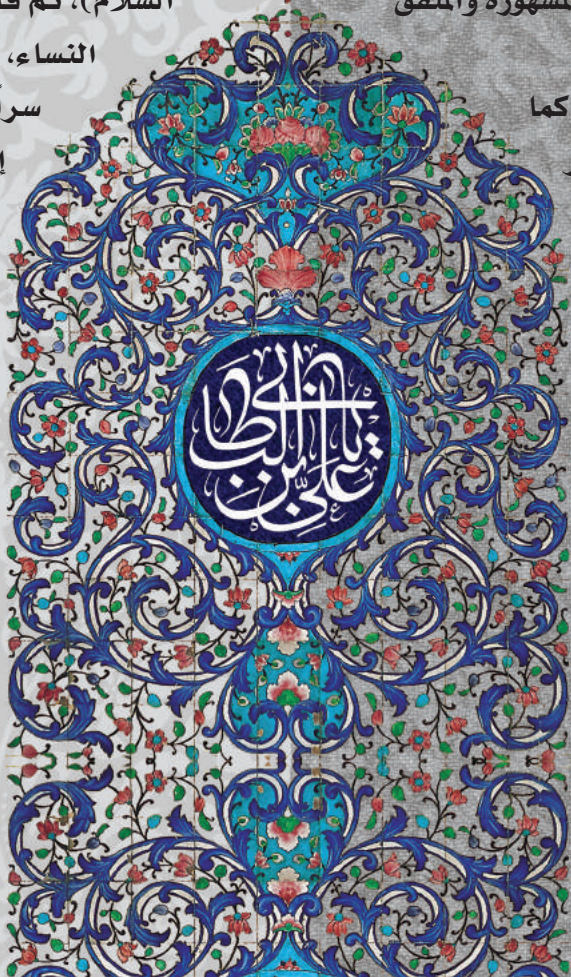 لمشهورة والمتفق
كما
السلام)، ثم
النساء،
سراً
يا علي بن ابي طالب